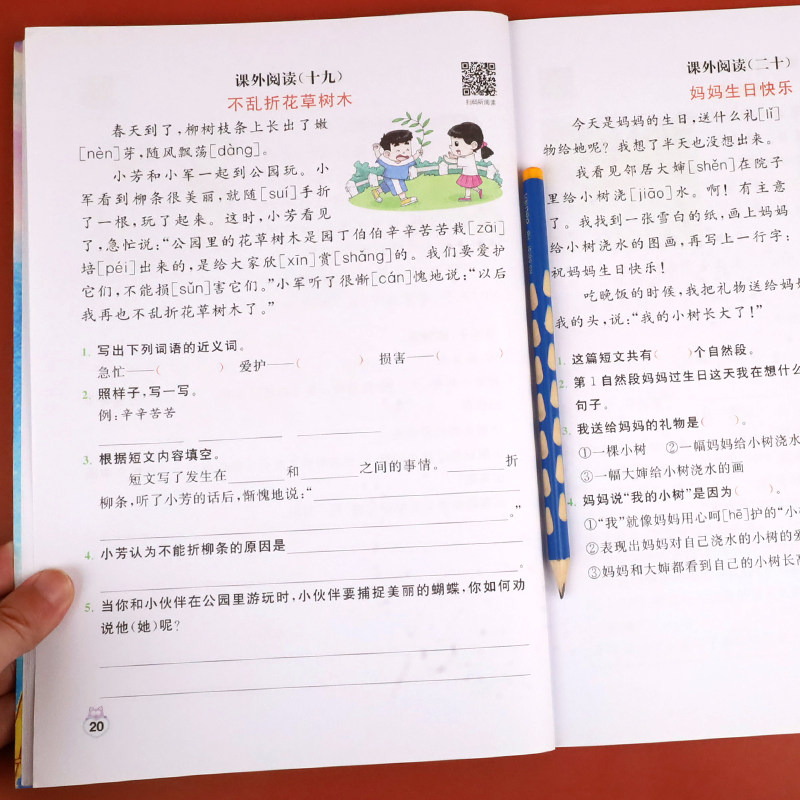 课外阅读(十九)
不乱折花草树木
春天到了,柳树枝条上长出了嫩
[nèn]芽,随风飘荡[dàng]。
小芳和小军一起到公园玩。小
军看到柳条很美丽,就随[suí]手折
了一根,玩了起来。这时,小芳看见
了,急忙说:“公园里的花草树木是园丁伯伯辛辛苦苦栽[zāi]
培[péi]出来的,是给大家欣[xīn]赏[shǎng]的。我们要爱护
它们,不能损[sǔn]害它们。”小军听了很惭[cán]愧地说:“以后
我再也不乱折花草树木了。”
1. 写出下列词语的近义词。
急忙——( ) 爱护——( ) 损害——( )
2. 照样子,写一写。
例:辛辛苦苦
3. 根据短文内容填空。
短文写了发生在________和________之间的事情。________折
柳条,听了小芳的话后,惭愧地说:“________
________。”
4. 小芳认为不能折柳条的原因是________
________。
5. 当你和小伙伴在公园里游玩时,小伙伴要捕捉美丽的蝴蝶,你如何劝
说他(她)呢?
20
课外阅读(二十)
妈妈生日快乐
今天是妈妈的生日,送什么礼[lǐ]
物给她呢?我想了半天也没想出来。
我看见邻居大婶[shěn]在院子
里给小树浇[jiāo]水。啊!有主意
了。我找到一张雪白的纸,画上妈妈
给小树浇水的图画,再写上一行字:
祝妈妈生日快乐!
吃晚饭的时候,我把礼物送给妈
我的头,说:“我的小树长大了!”
1. 这篇短文共有( )个自然段。
2. 第1自然段妈妈过生日这天我在想什么
句子。
3. 我送给妈妈的礼物是( )。
①一棵小树 ②一幅妈妈给小树浇水
③一幅大婶给小树浇水的画
4. 妈妈说“我的小树”是因为( )。
①“我”就像妈妈用心呵[hē]护的“小
②表现出妈妈对自己浇水的小树的爱
③妈妈和大婶都看到自己的小树长高